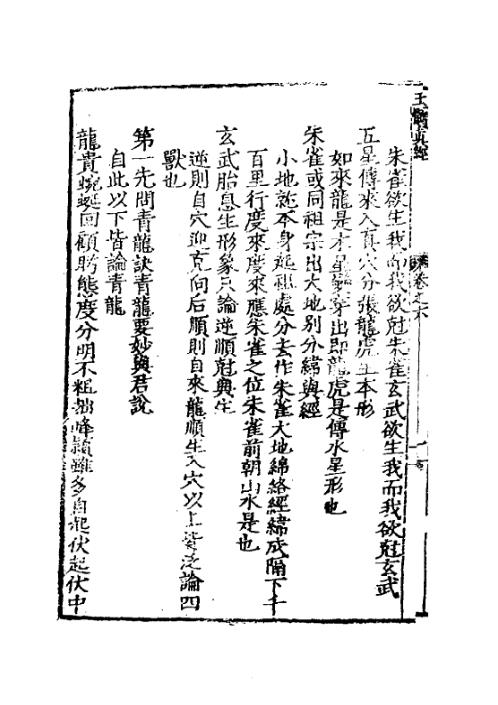 朱雀欲生我而我欲尅朱雀玄武欲生我而我欲尅玄武
五星傳來入真穴分張龍虎生本形
如來龍是木星穿出即龍虎是傳水星形也
朱雀或同祖宗出大地別分緯與經
小地就本身起祖處分去作朱雀大地綿絡經緯成隔下千
百里行度來度來應朱雀之位朱雀前朝山水是也
玄武胎息生形象只論逆順尅與生
逆則自穴迎克向后順則自來龍順生入穴以上皆泛論四
獸也
第一先問青龍訣青龍要妙與君說
自此以下皆論青龍
龍貴蜿蜒回顧盼態度分明不粗拙峰巒雖多自起伏起伏中
卷之六